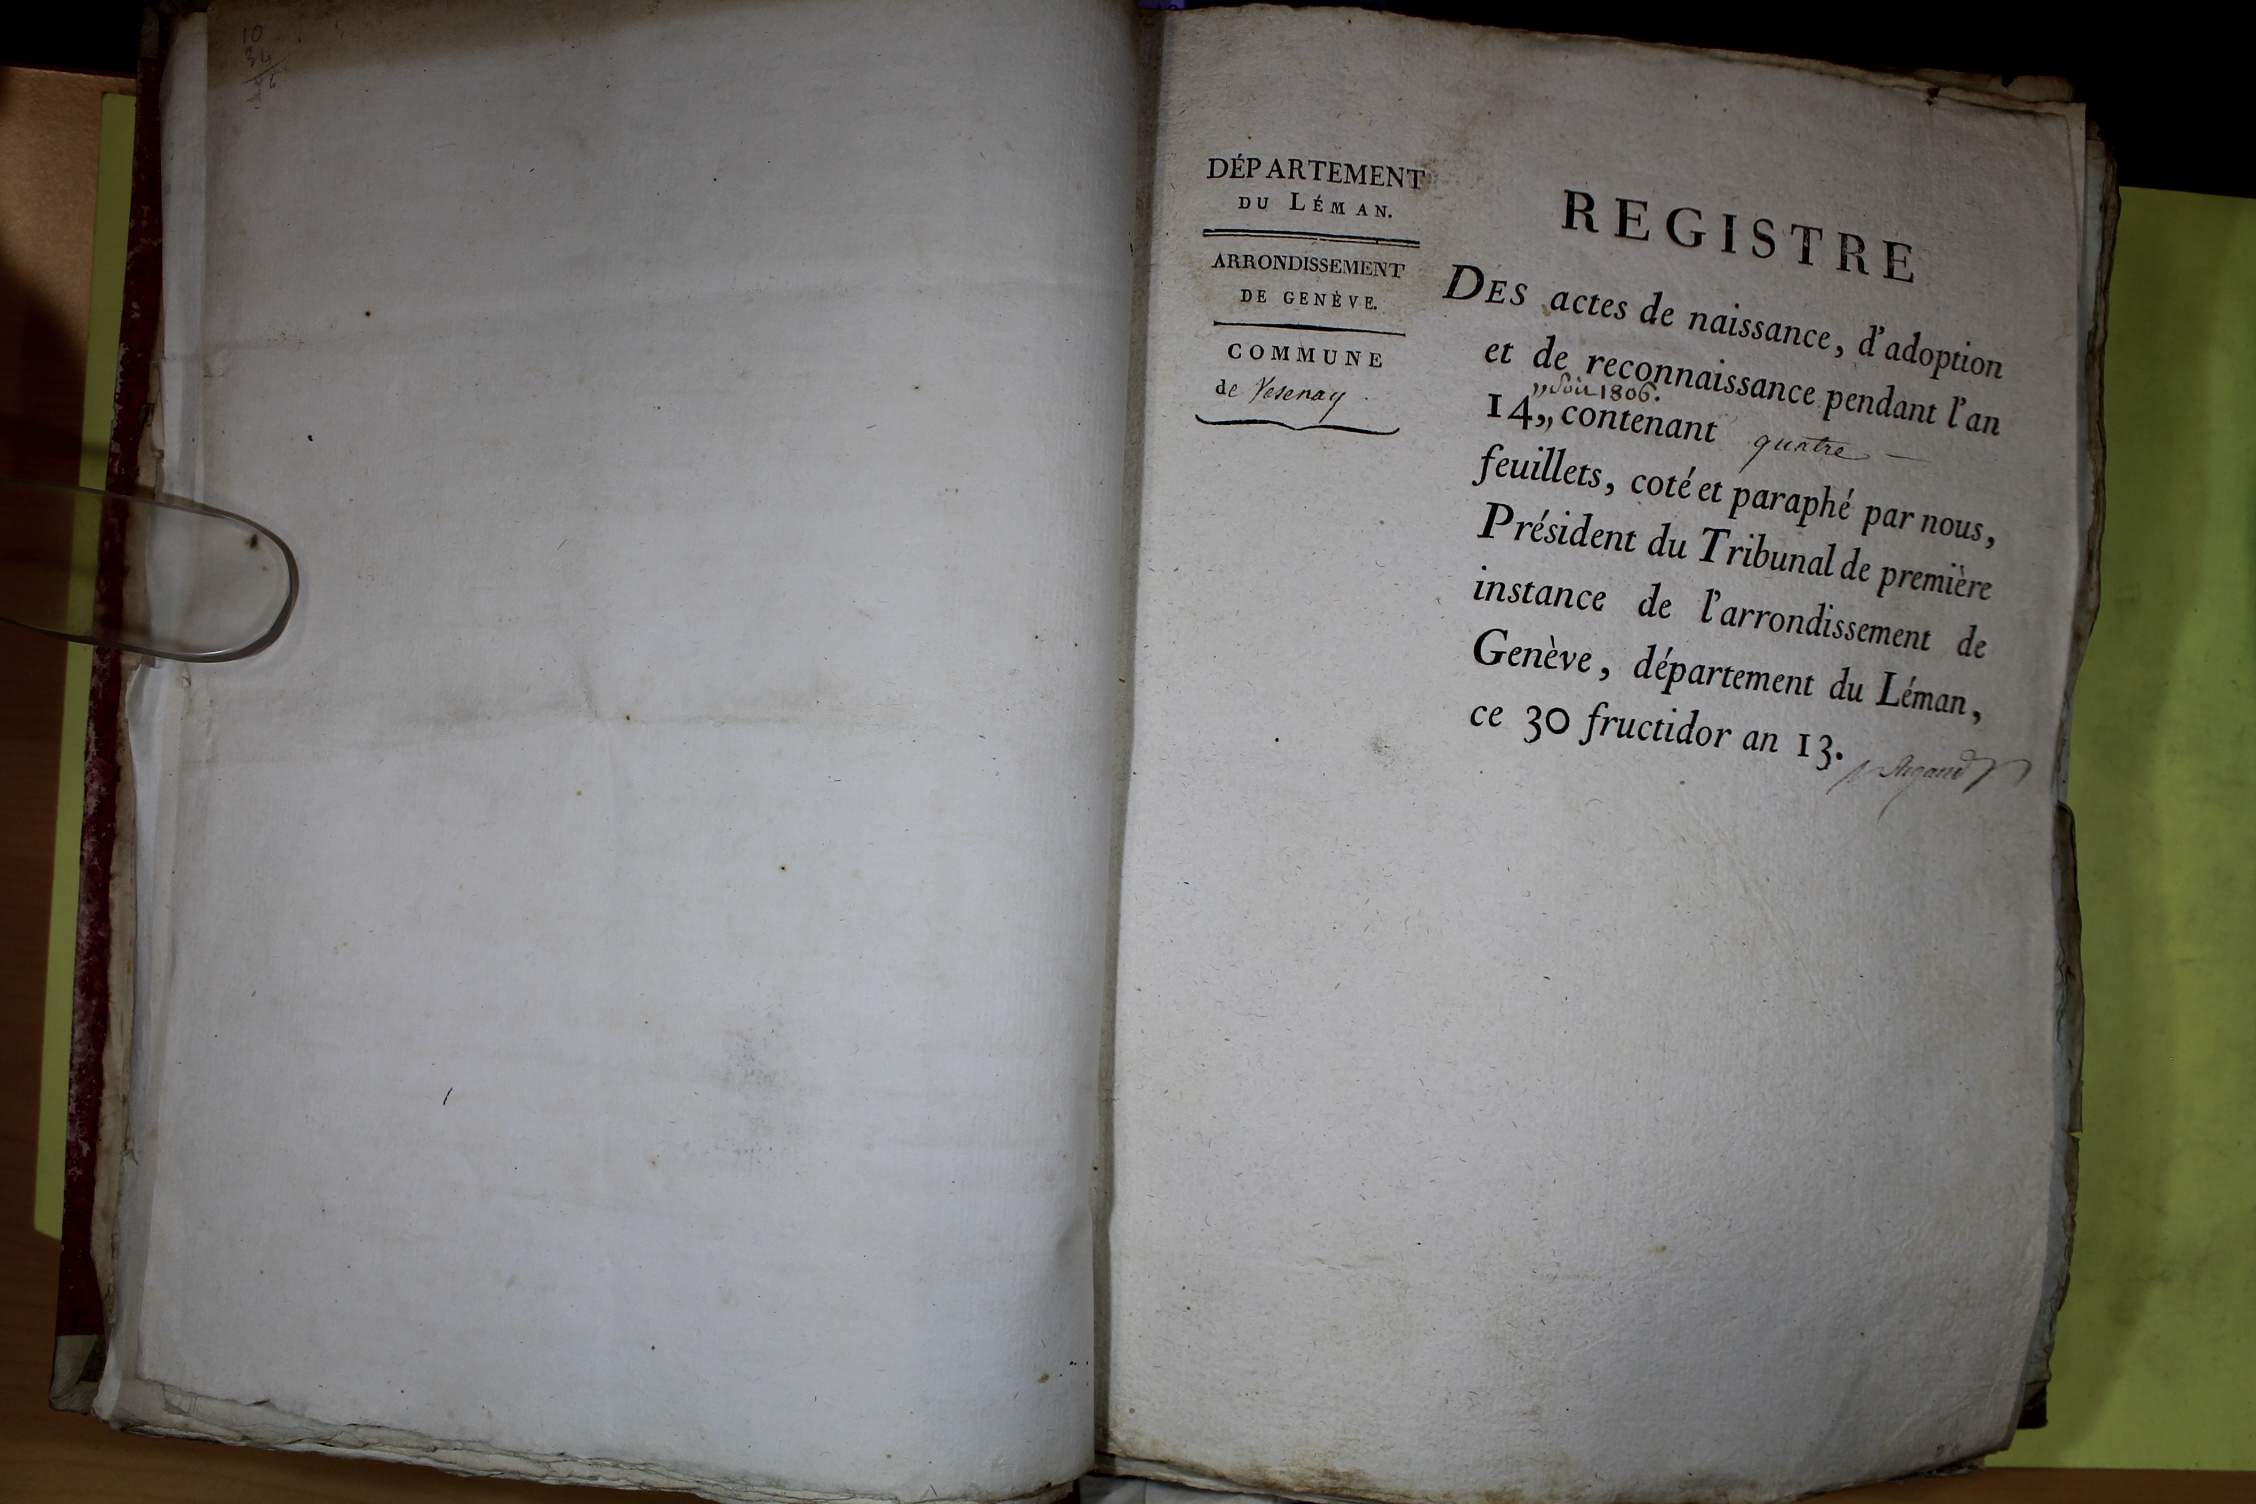 10
34
DÉPARTEMENT
DU LÉMAN.
ARRONDISSEMENT
DE GENÈVE.
COMMUNE
de Vesenay
REGISTRE
DES actes de naissance, d'adoption
et de reconnaissance pendant l'an
„ soit 1806.
14„, contenant quatre —
feuillets, coté et paraphé par nous,
Président du Tribunal de première
instance de l'arrondissement de
Genève, département du Léman,
ce 30 fructidor an 13.
Argand